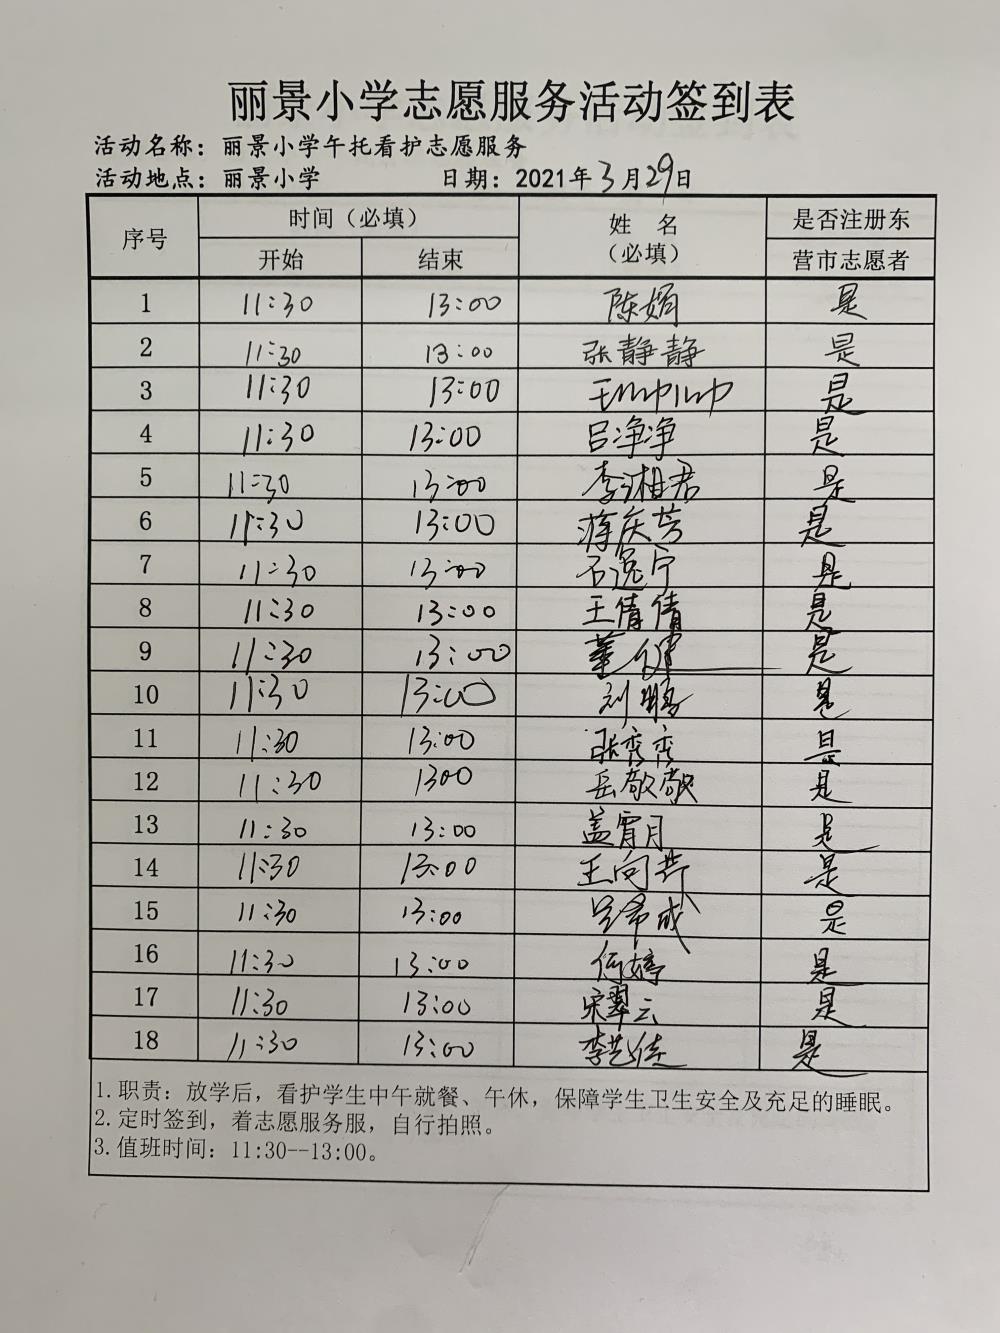 丽景小学志愿服务活动签到表
活动名称：丽景小学午托看护志愿服务
活动地点：丽景小学 日期：2021年3月29日
序号 时间（必填） 姓 名 是否注册东
开始 结束 （必填） 营市志愿者
1 11:30 13:00 陈娟 是
2 11:30 13:00 张静静 是
3 11:30 13:00 是
4 11:30 13:00 吕净净 是
5 11:30 13:00 李湘君 是
6 11:30 13:00 蒋庆芳 是
7 11:30 13:00 石逸宁 是
8 11:30 13:00 王倩倩 是
9 11:30 13:00 董健 是
10 11:30 13:00 刘鹏 是
11 11:30 13:00 张秀秀 是
12 11:30 1300 岳敬敬 是
13 11:30 13:00 盖霄月 是
14 11:30 13:00 王向 是
15 11:30 13:00 希成 是
16 11:30 13:00 何婷 是
17 11:30 13:00 宋翠云 是
18 11:30 13:00 李艺佳 是
1.职责：放学后，看护学生中午就餐、午休，保障学生卫生安全及充足的睡眠。
2.定时签到，着志愿服务服，自行拍照。
3.值班时间：11:30--13:00。